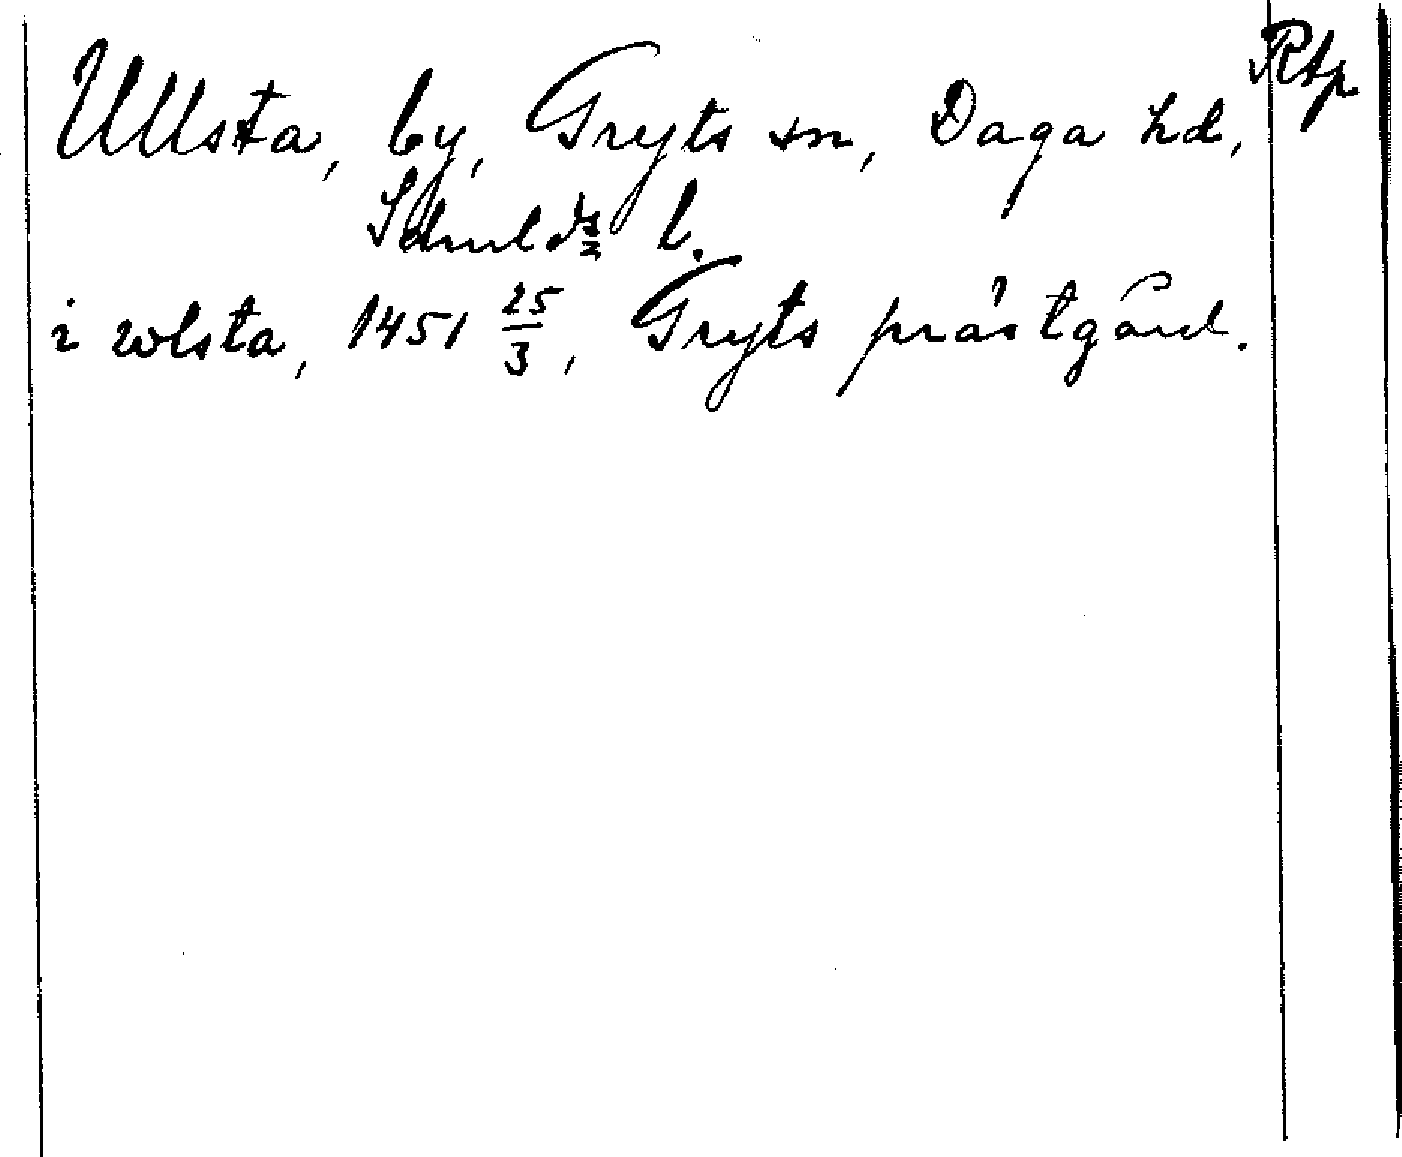 Rtp
Ullsta, by, Gryts sn, Daga hd,
l.
i wlsta, 1451 25/3, Gryts prästgård.